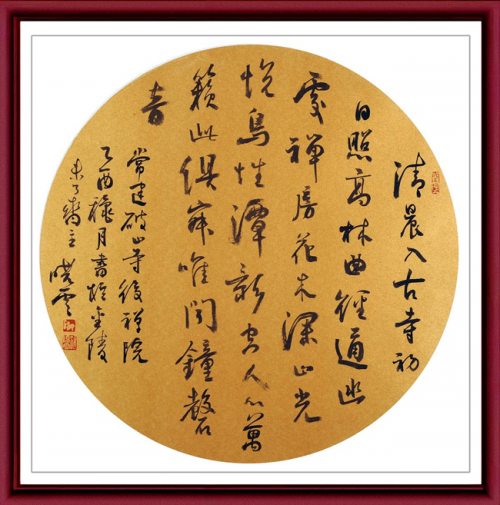 清晨入古寺初
日照高林曲徑通幽
處禪房花木深山光
悦鳥性潭影空人心萬
籟此俱寂唯聞鐘磬
音
常建破山寺後禅院
乙酉穐月書於金陵
未了齋主 曉雲